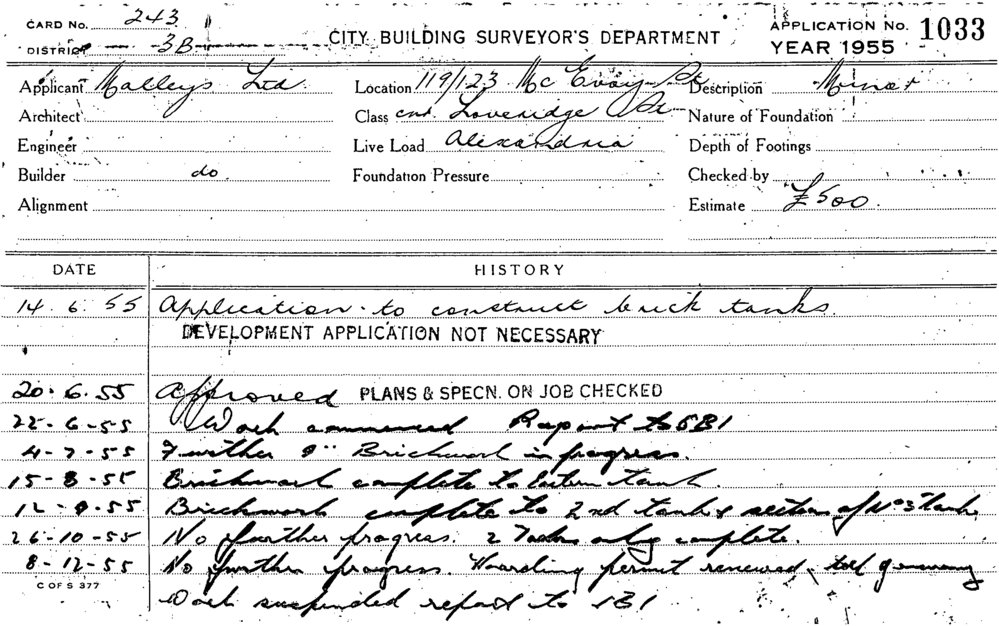 CARD No. 243
DISTRICT 3B
CITY BUILDING SURVEYOR'S DEPARTMENT
APPLICATION No. 1033
YEAR 1955
Applicant Malleys Ltd. Location 119/123 McEvoy St Description Minor
Architect Class cnr. Loveridge St Nature of Foundation
Engineer Live Load Alexandria Depth of Footings
Builder do. Foundation Pressure Checked by
Alignment Estimate £500.
DATE HISTORY
14.6.55 Application to construct brick tanks.
DEVELOPMENT APPLICATION NOT NECESSARY
20.6.55 Approved PLANS & SPECN. ON JOB CHECKED
22-6-55 Work commenced Report to SBI
4-7-55 Further 9" Brickwork in progress.
15-8-55 Brickwork complete to Eastern tank.
12-9-55 Brickwork complete to 2nd tank & section of No 3 tank
26-10-55 No further progress. 2 Tanks only complete.
8-12-55 No further progress. Hoarding permit renewed,
C OF S 377
Work suspended report to